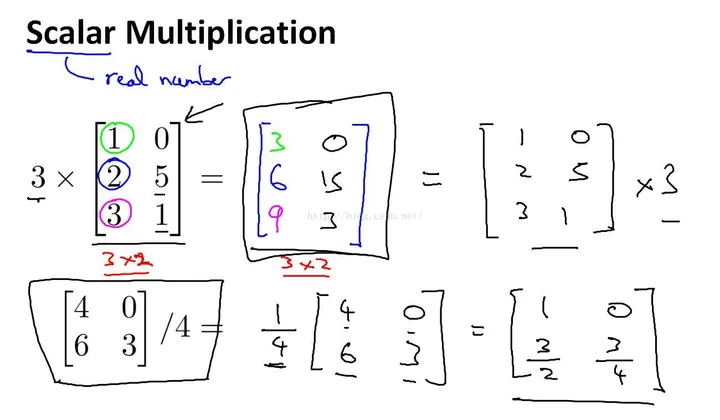 Scalar Multiplication
real number
3 × [1 0; 2 5; 3 1] = [3 0; 6 15; 9 3] = [1 0; 2 5; 3 1] × 3
http://blog.csdn.net/
3×2 3×2
[4 0; 6 3] /4 = 1/4 [4 0; 6 3] = [1 0; 3/2 3/4]